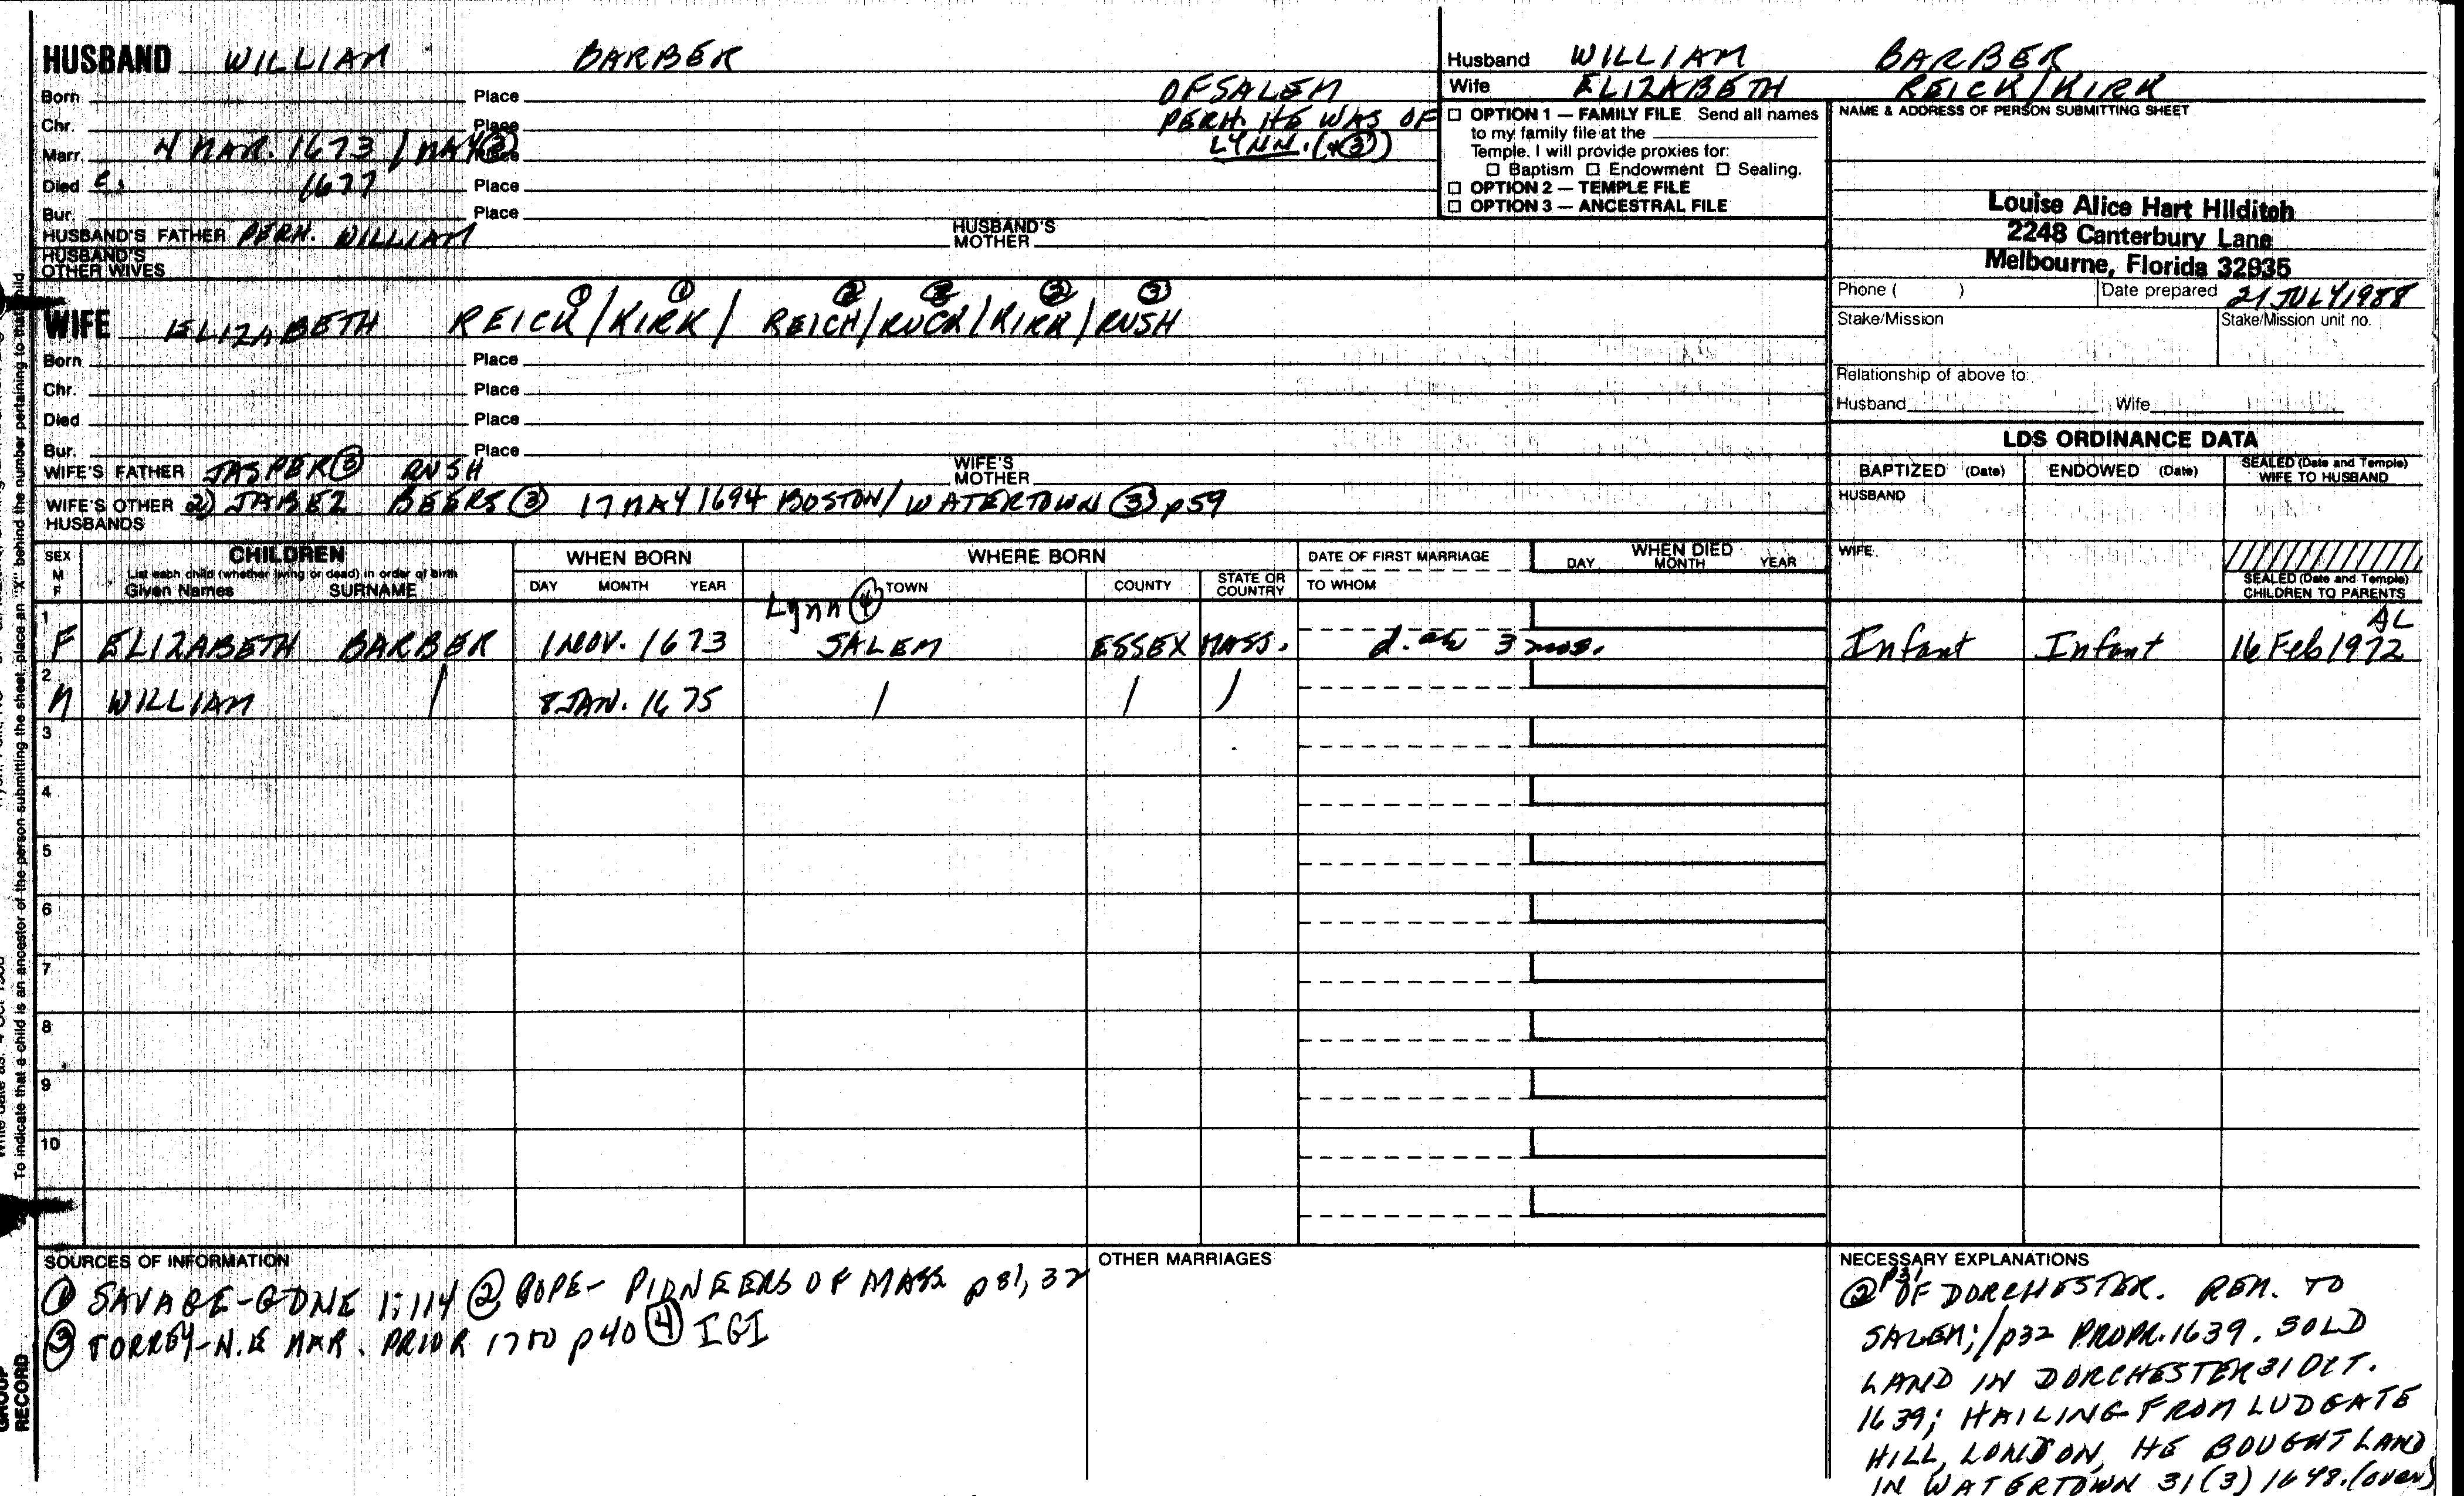 HUSBAND WILLIAM BARBER
Born Place OF SALEM
Chr. Place PERH. HE WAS OF
Marr. 4 MAR. 1673 / MAY ③ Place LYNN. (③)
Died c. 1677 Place
Bur. Place
HUSBAND'S FATHER PERH. WILLIAM HUSBAND'S MOTHER
HUSBAND'S OTHER WIVES
Husband WILLIAM BARBER
Wife ELIZABETH REICK/KIRK
☐ OPTION 1 — FAMILY FILE Send all names
to my family file at the
Temple. I will provide proxies for:
☐ Baptism ☐ Endowment ☐ Sealing.
☐ OPTION 2 — TEMPLE FILE
☐ OPTION 3 — ANCESTRAL FILE
NAME & ADDRESS OF PERSON SUBMITTING SHEET
Louise Alice Hart Hilditch
2248 Canterbury Lane
Melbourne, Florida 32935
Phone ( ) Date prepared 21 JULY 1988
Stake/Mission Stake/Mission unit no.
Relationship of above to:
Husband Wife
① ① ② ② ② ③
WIFE ELIZABETH REICK/KIRK/ REICH/RUCK/KIRK/RUSH
Born Place
Chr. Place
Died Place
Bur. Place
WIFE'S FATHER JASPER ③ RUSH WIFE'S MOTHER
WIFE'S OTHER HUSBANDS 2) JABEZ BEERS ③ 17 MAY 1694 BOSTON/WATERTOWN ③ p59
LDS ORDINANCE DATA
BAPTIZED (Date) ENDOWED (Date) SEALED (Date and Temple) WIFE TO HUSBAND
HUSBAND
WIFE
SEALED (Date and Temple) CHILDREN TO PARENTS
SEX M F
CHILDREN
List each child (whether living or dead) in order of birth
Given Names SURNAME
WHEN BORN
DAY MONTH YEAR
WHERE BORN
TOWN COUNTY STATE OR COUNTRY
DATE OF FIRST MARRIAGE
TO WHOM
WHEN DIED
DAY MONTH YEAR
Lynn ④
AL
1 F ELIZABETH BARBER 1 NOV. 1673 SALEM ESSEX MASS. d. ae 3 mos. Infant Infant 16 Feb 1972
2 M WILLIAM / 8 JAN. 1675 / / /
3
4
5
6
7
8
9
10
SOURCES OF INFORMATION
① SAVAGE-GDNE 1:114 ② POPE- PIONEERS OF MASS p 31, 32
③ TORREY-N.E MAR. PRIOR 1700 p40 ④ IGI
OTHER MARRIAGES
NECESSARY EXPLANATIONS
② p31 OF DORCHESTER. REM. TO
SALEM;/p32 PROPR. 1639. SOLD
LAND IN DORCHESTER 31 OCT.
1639; HAILING FROM LUDGATE
HILL, LONDON, HE BOUGHT LAND
IN WATERTOWN 31 (3) 1648. (over)
To indicate that a child is an ancestor of the person submitting the sheet, place an "X" behind the number pertaining to that child.
GROUP
RECORD